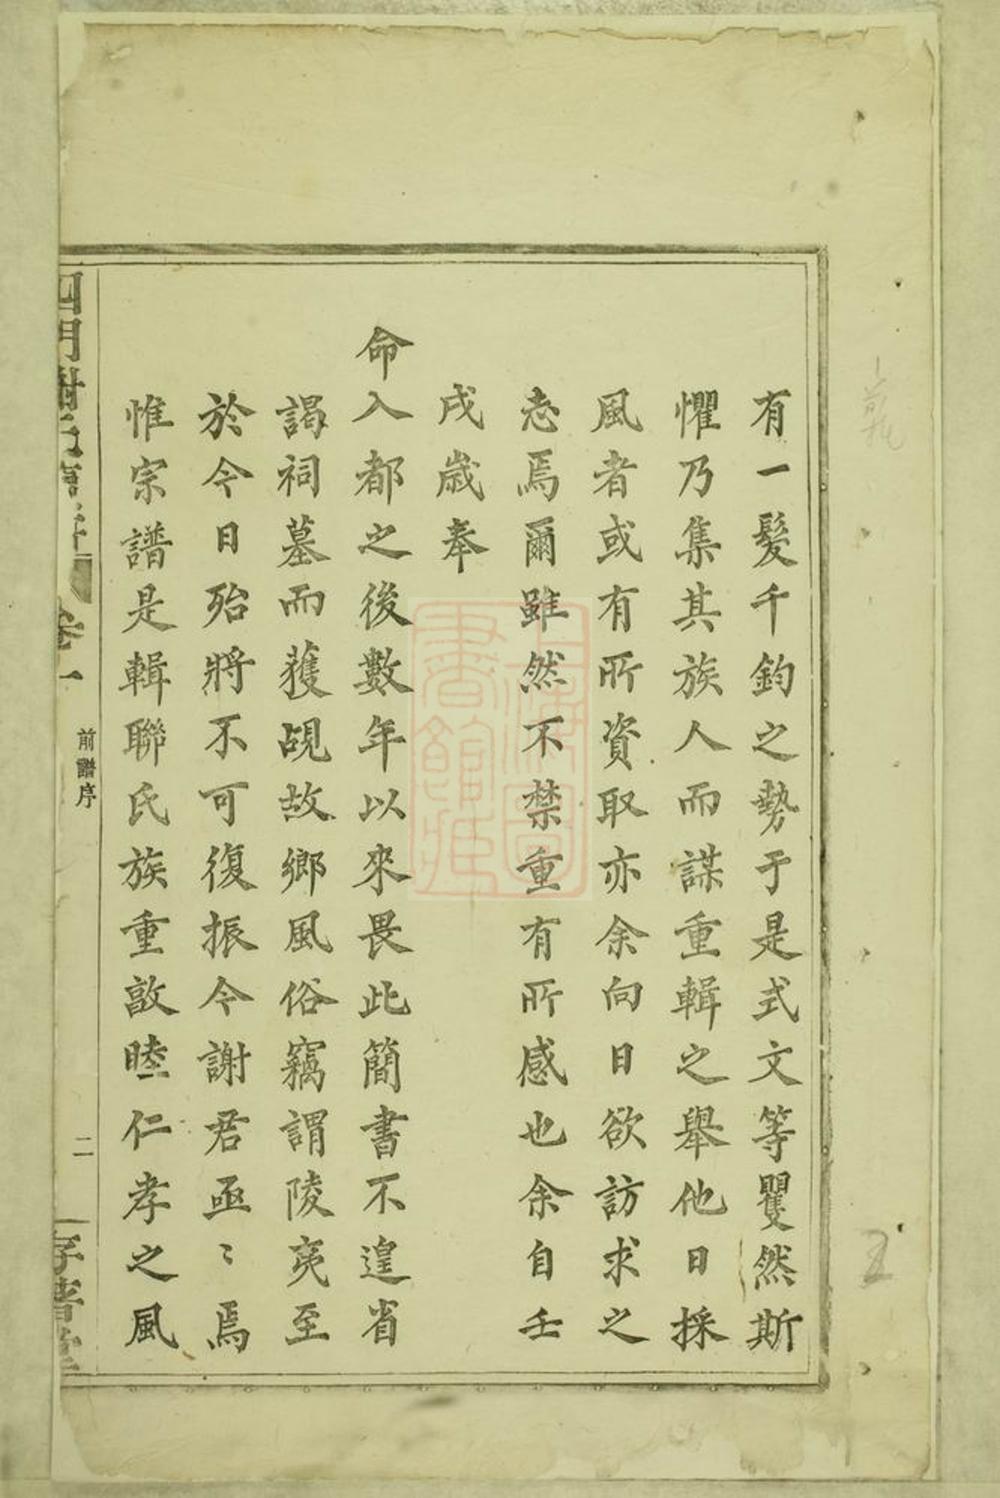 有一髮千鈞之勢于是式文等瞿然斯
懼乃集其族人而謀重輯之舉他日採
風者或有所資取亦余向日欲訪求之
志焉爾雖然不禁重有所感也余自壬
戌歲奉
命入都之後數年以來畏此簡書不遑省
謁祠墓而蒦覘故鄉風俗竊謂陵夷至
於今日殆將不可復振今謝君亟〻焉
惟宗譜是輯聯氏族重敦睦仁孝之風
四明謝氏 卷一
前譜序
二
存著堂
書館藏
2